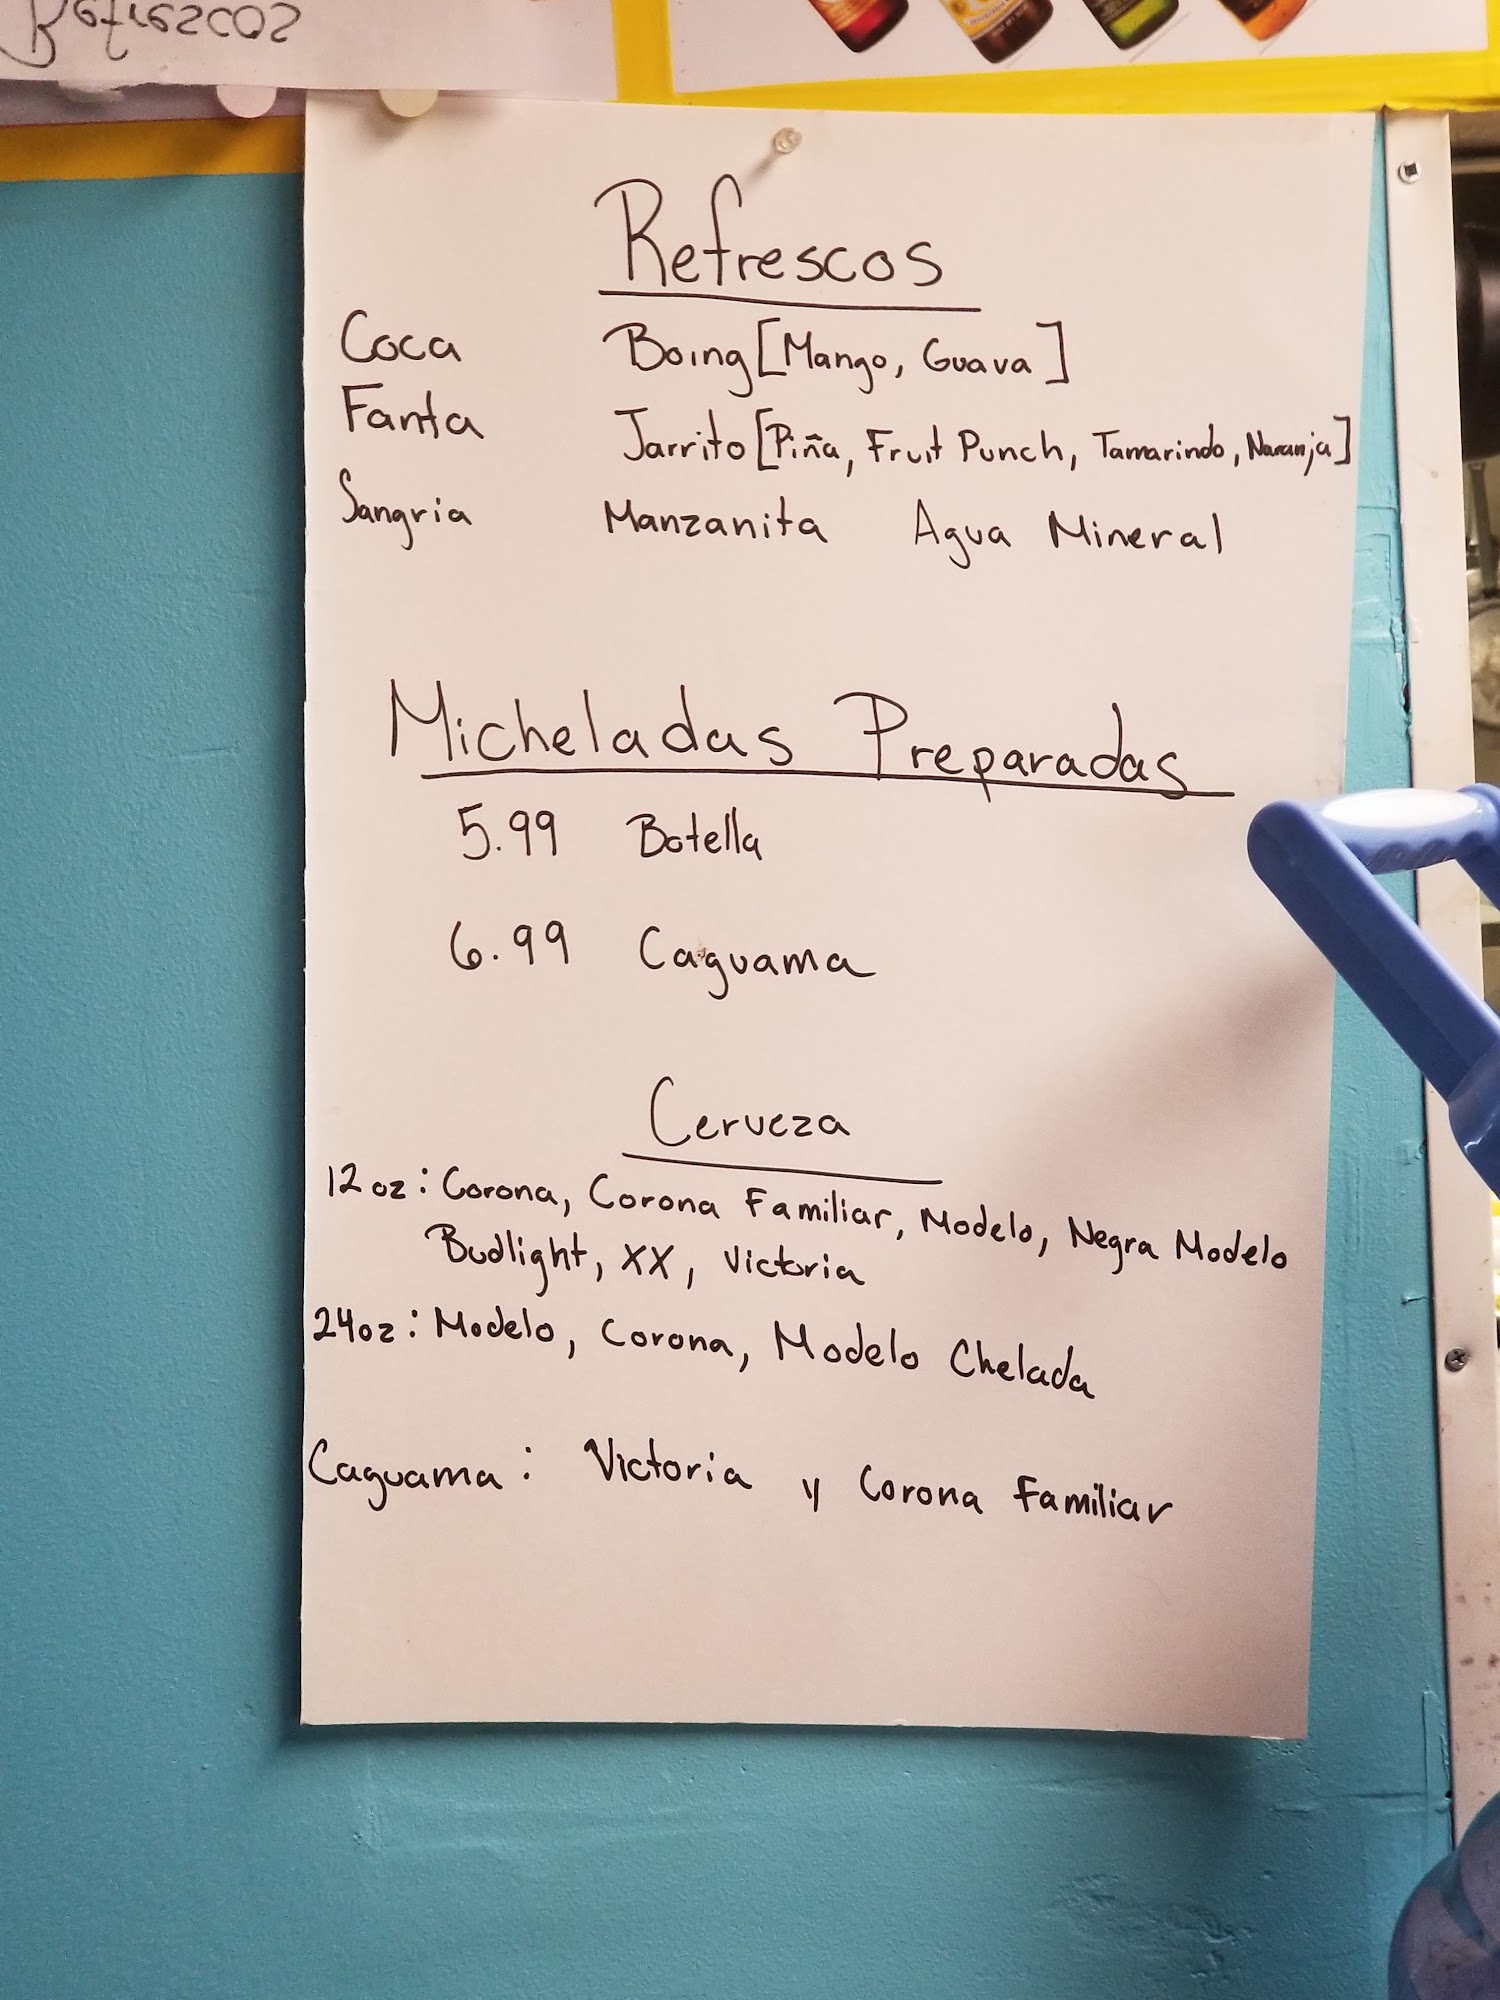 Refrescos
Refrescos
Coca Boing [Mango, Guava]
Fanta Jarrito [Piña, Fruit Punch, Tamarindo, Naranja]
Sangria Manzanita Agua Mineral
Micheladas Preparadas
5.99 Botella
6.99 Caguama
Cerveza
12oz: Corona, Corona Familiar, Modelo, Negra Modelo
Budlight, XX, Victoria
24oz: Modelo, Corona, Modelo Chelada
Caguama: Victoria y Corona Familiar